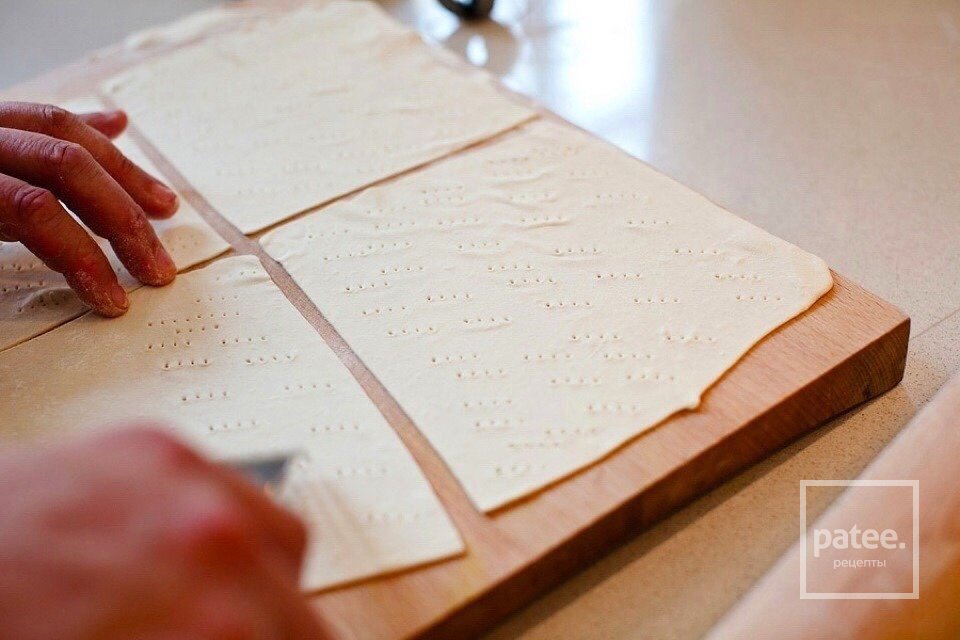 patee.
рецепты